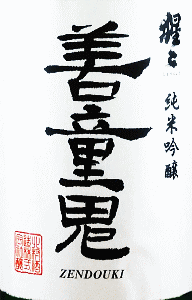 猩々 純米吟醸
善童鬼
ZENDOUKI